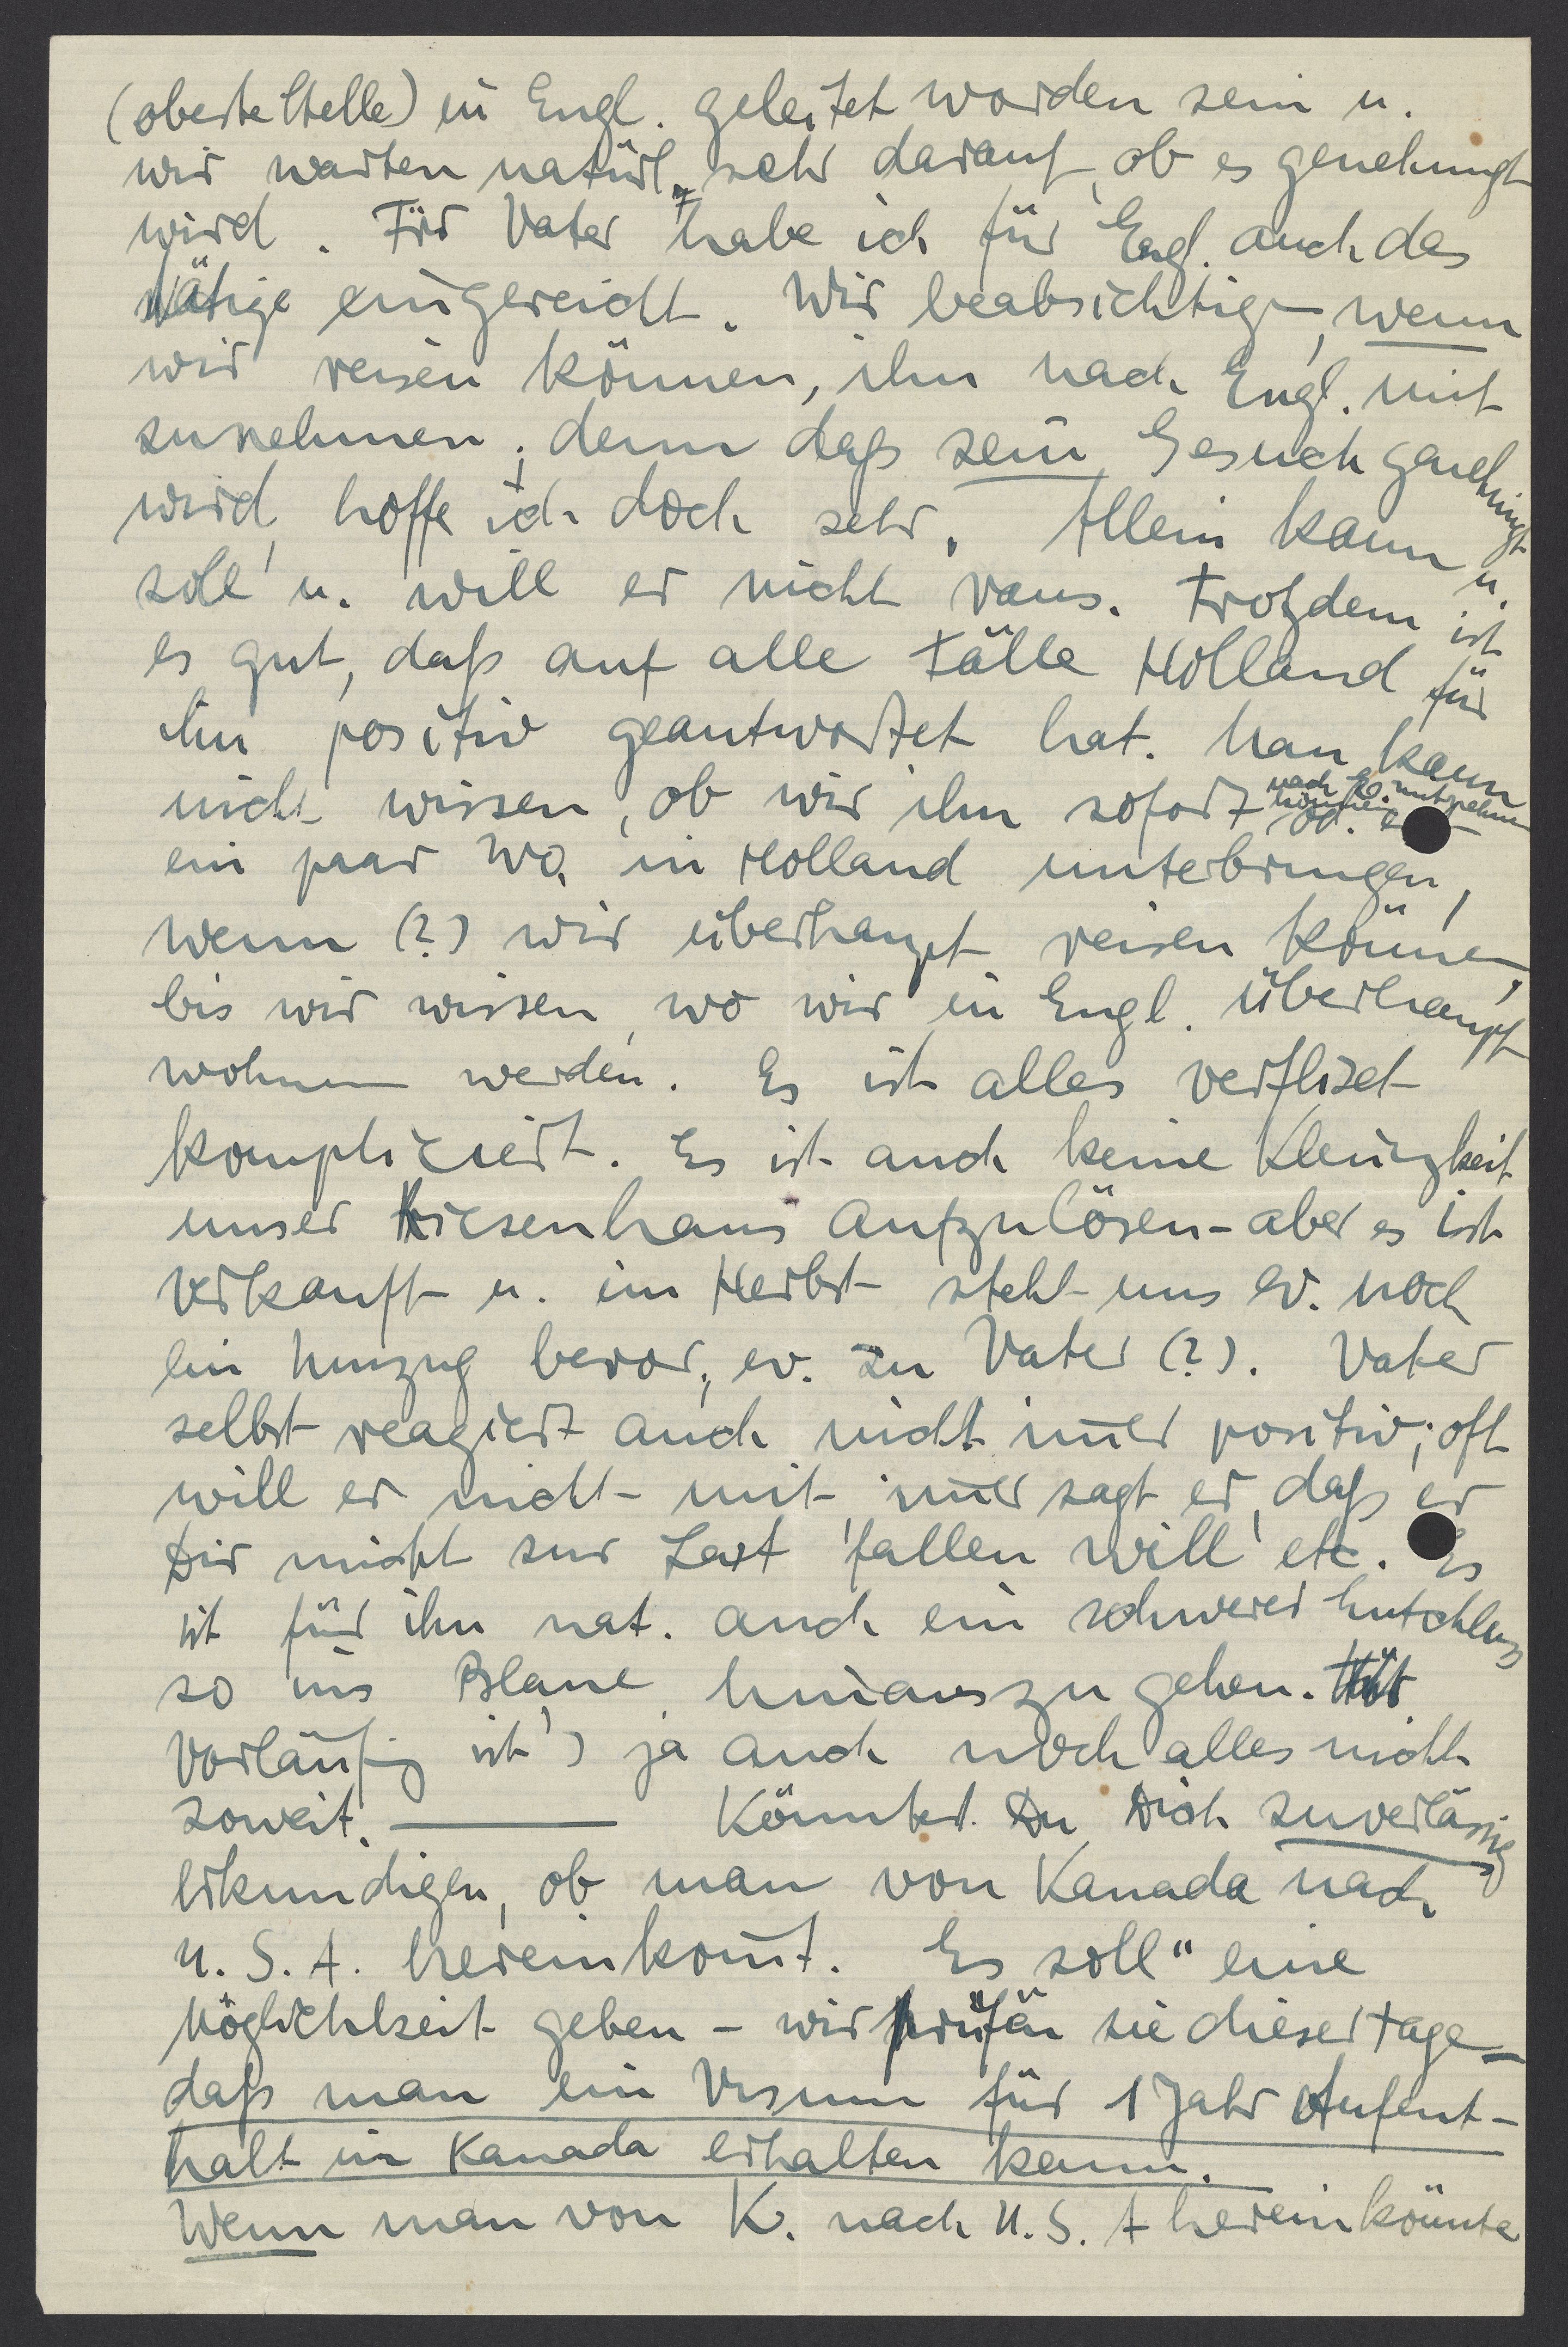 (oberste Stelle) in Engl. geleitet worden sein u.
wir warten natürl. sehr darauf, ob es genehmigt
wird. Für Vater habe ich für Engl. auch das
Nötige eingereicht. Wir beabsichtigen, wenn
wir reisen können, ihn nach Engl. mit
zunehmen; denn daß sein Gesuch genehmigt
wird, hoffe ich doch sehr. Allein kann u.
soll u. will er nicht raus. Trotzdem ist
es gut, daß auf alle Fälle Holland für
ihn positiv geantwortet hat. Man kann
nicht wissen, ob wir ihn sofort nach E. mitnehmen können od.
ein paar Wo. in Holland unterbringen,
wenn (?) wir überhaupt reisen können,
bis wir wissen, wo wir in Engl. überhaupt
wohnen werden. Es ist alles verflixt
kompliziert. Es ist auch keine Kleinigkeit
unser Riesenhaus aufzulösen - aber es ist
verkauft u. im Herbst steht uns ev. noch
ein Umzug bevor, ev. zu Vater (?). Vater
selbst reagiert auch nicht im̄er positiv; oft
will er nicht mit, im̄er sagt er, daß er
Dir nicht zur Last fallen will etc. Es
ist für ihn nat. auch ein schwerer Entschluß
so ins Blaue hinauszugehen.
Vorläufig ist's ja auch noch alles nicht
soweit. — Könntest Du Dich zuverlässig
erkundigen, ob man von Kanada nach
U.S.A. hereinkom̄t. Es soll" eine
Möglichkeit geben - wir prüfen sie dieser Tage -
daß man ein Visum für 1 Jahr Aufent-
halt in Kanada erhalten kann.
Wenn man von K. nach U.S.A hereinkönnte